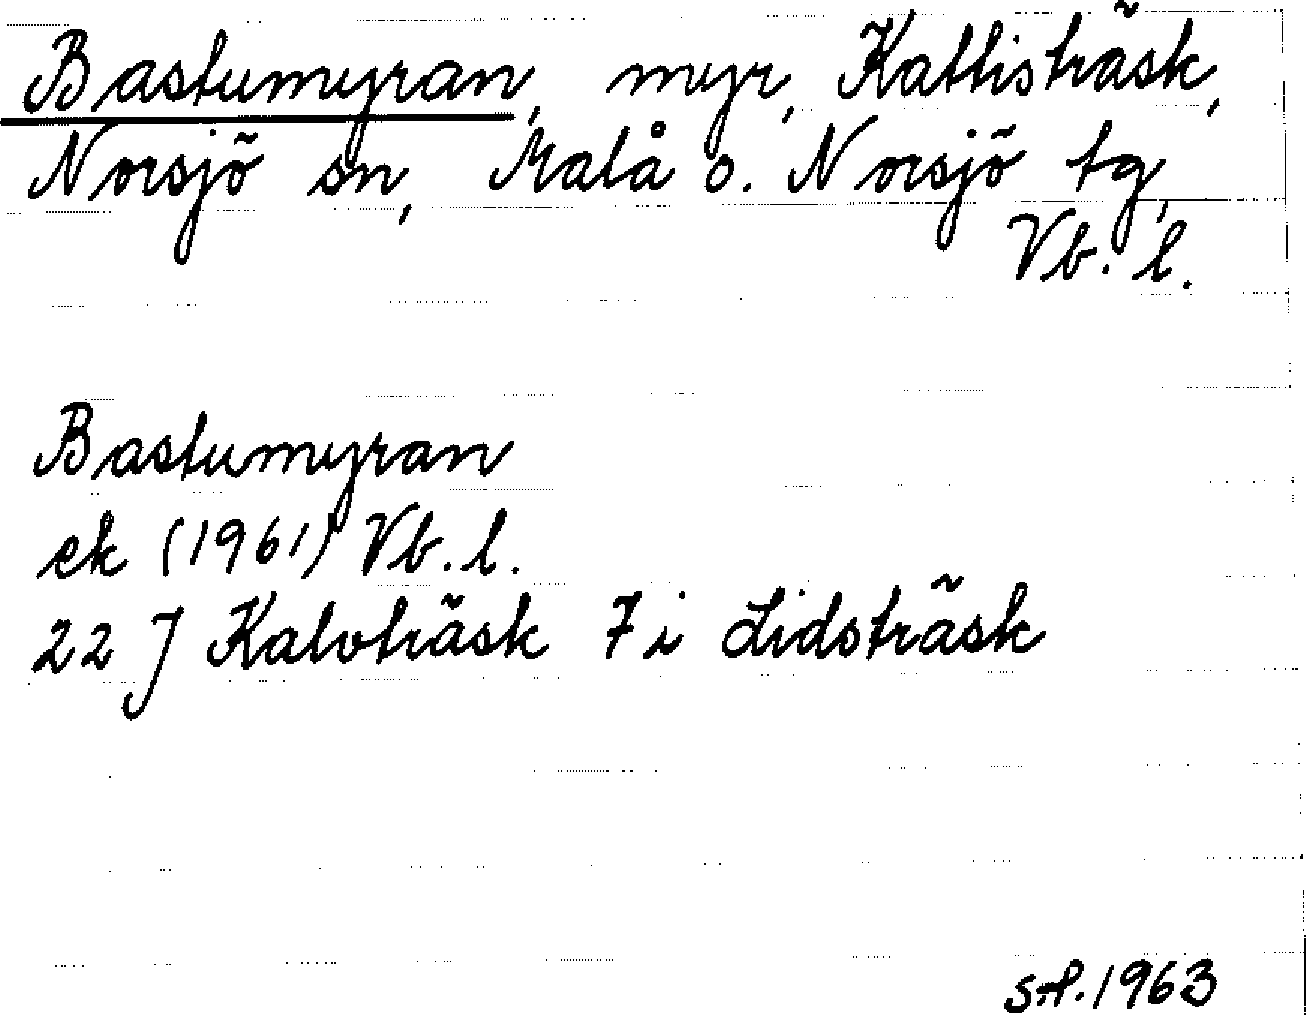 Bastumyran, myr, Kattisträsk,
Norsjö sn, Malå o. Norsjö tg,
Vb. l.
Bastumyran
ek (1961) Vb. l.
22 J Kalvträsk 7 i Lidsträsk
st. 1963